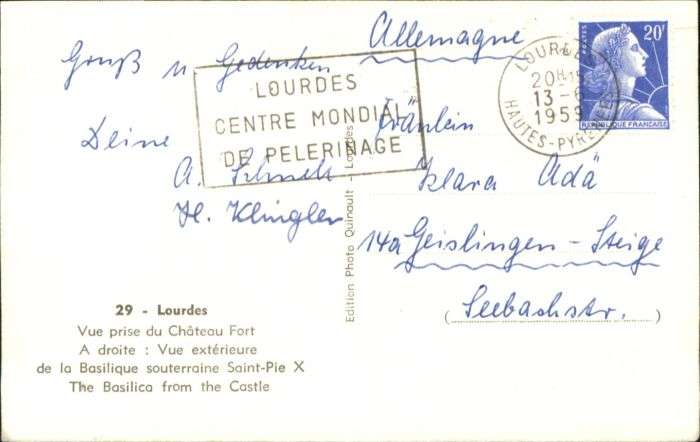 Gruß u. Gedenken
Deine
A. Schmelz
H. Klingler
Allemagne
Fräulein
Klara Adä
14a Geislingen-Steige
Seebachstr.
( )
LOURDES
CENTRE MONDIAL
DE PELERINAGE
LOURDES
20H
13-6
1959
HAUTES-PYRENEES
20F
POSTES
REPUBLIQUE FRANÇAISE
Edition Photo Quinault - Lourdes
29 - Lourdes
Vue prise du Château Fort
A droite : Vue extérieure
de la Basilique souterraine Saint-Pie X
The Basilica from the Castle